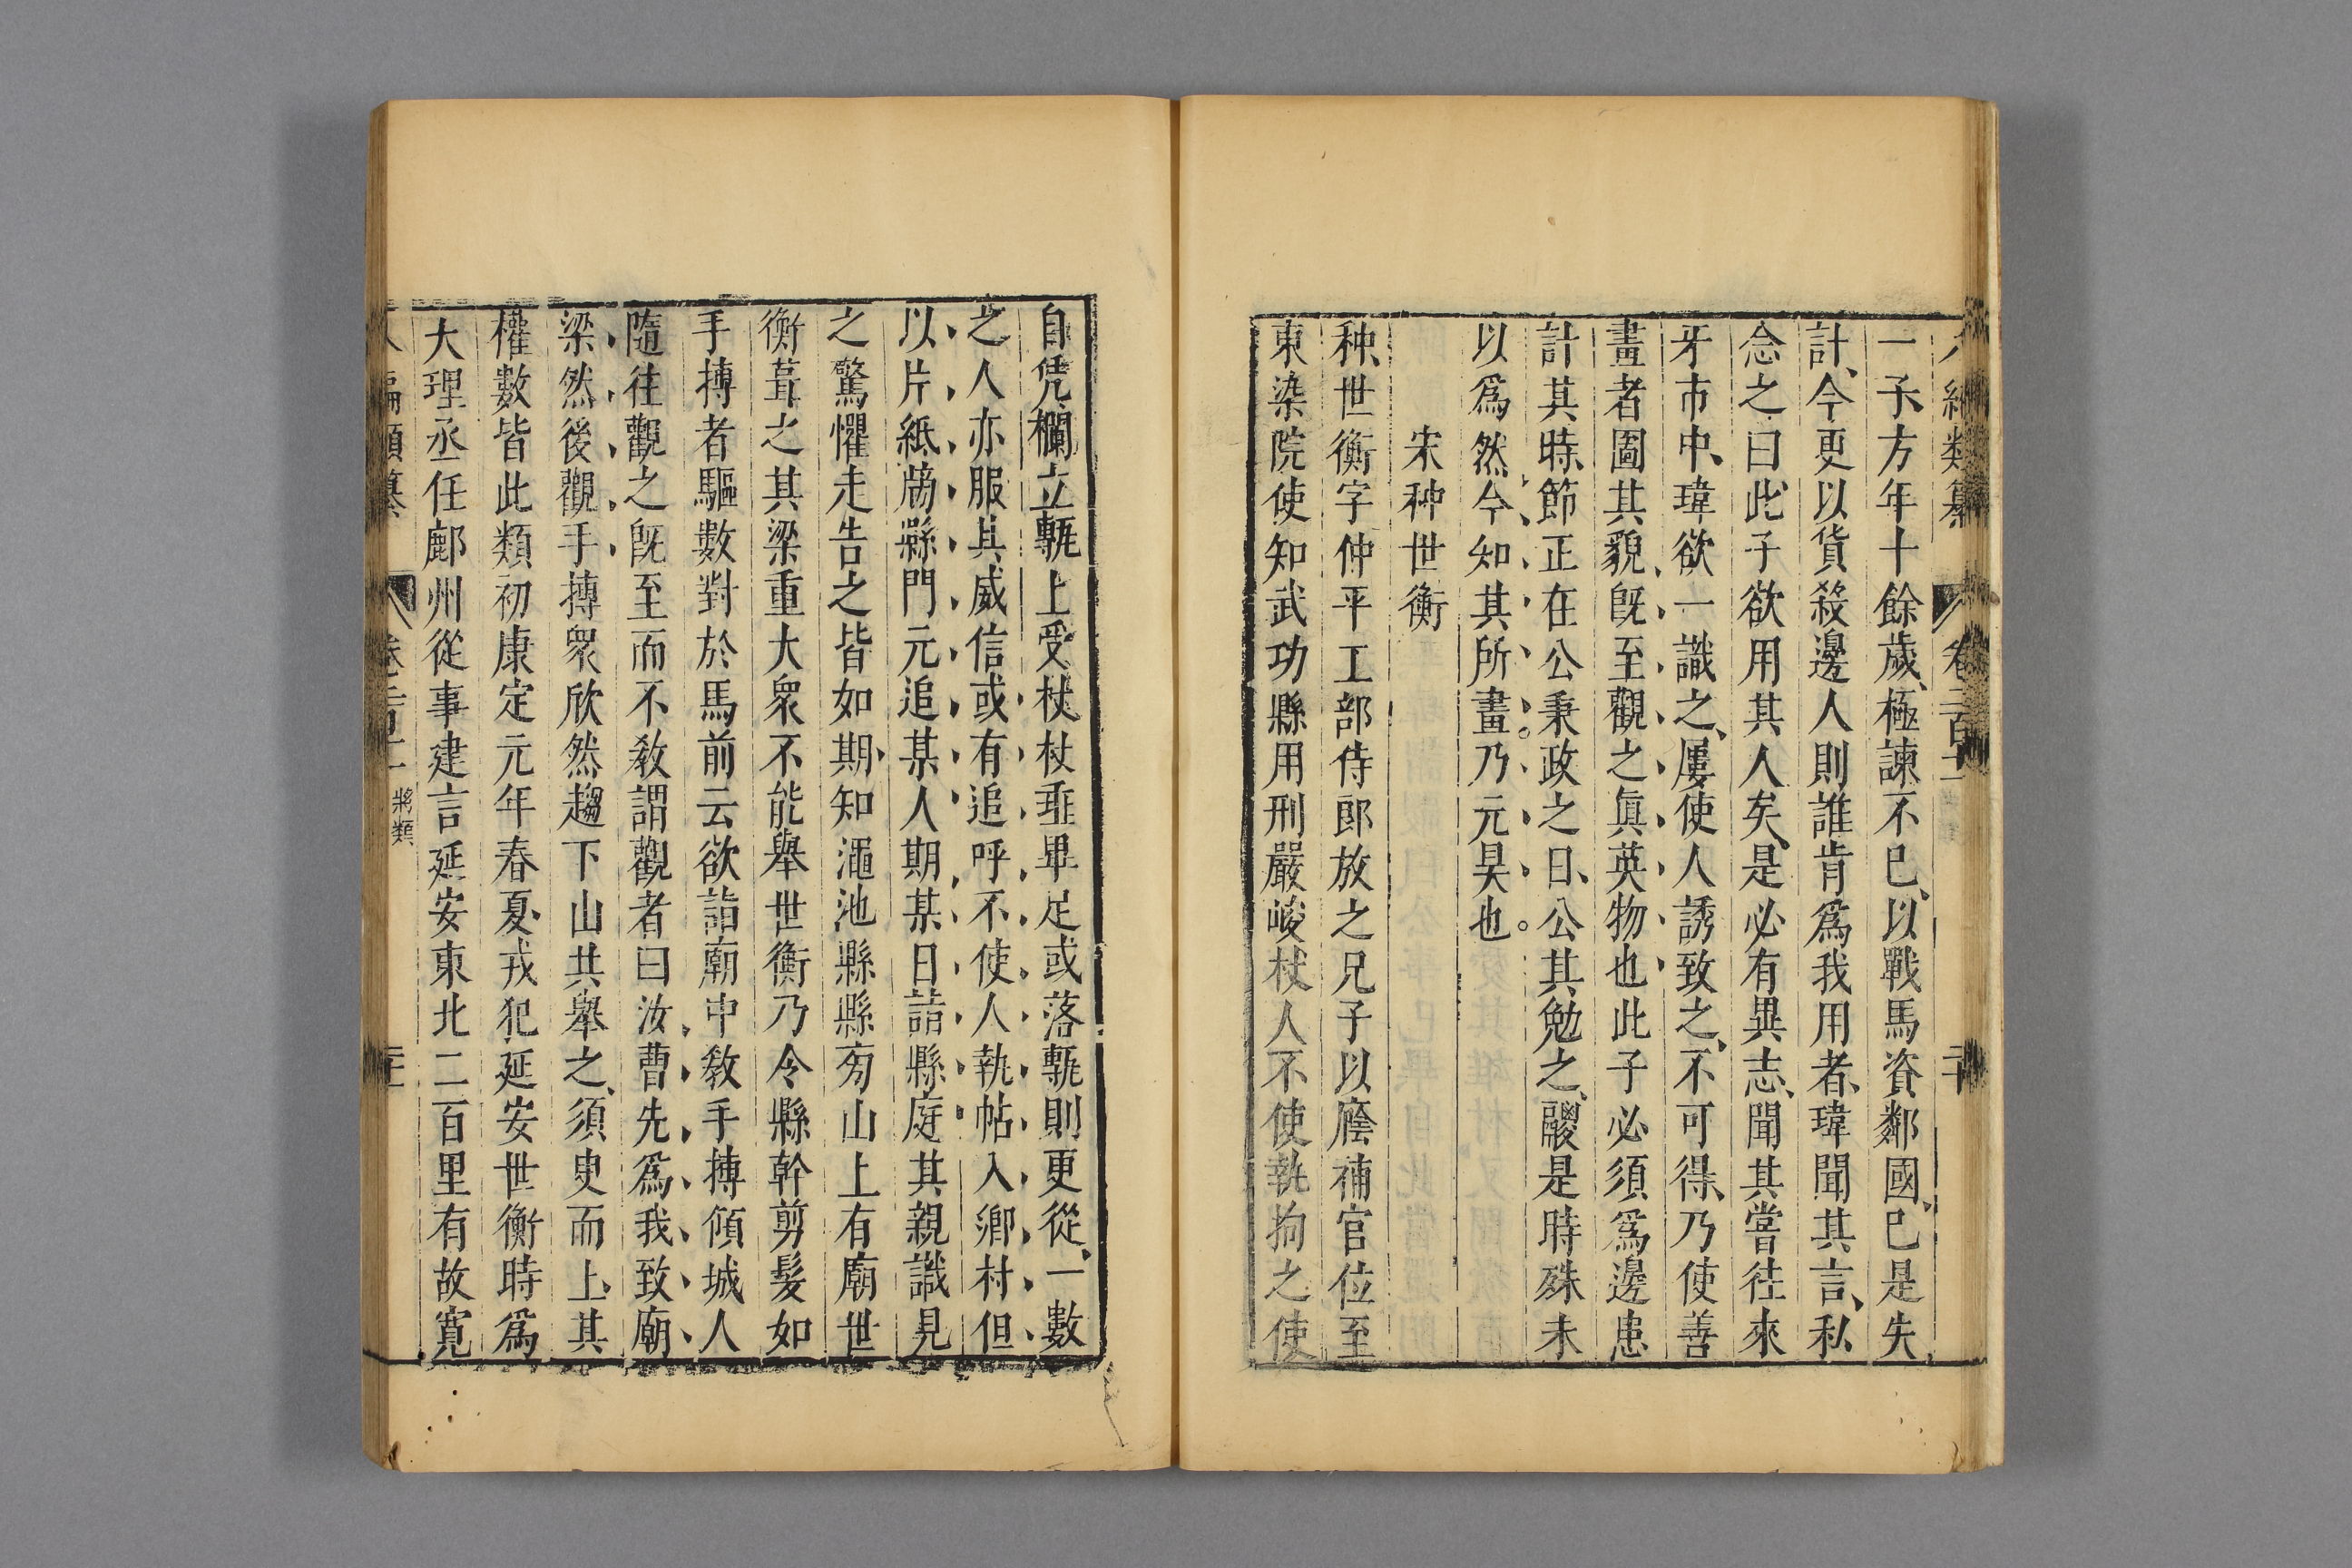 一子方年十餘歲極諫不已以戰馬資鄰國已是失
計今更以貨殺邊人則誰肯爲我用者瑋聞其言私
念之曰此子欲用其人矣是必有異志聞其嘗徃來
牙市中瑋欲一識之屢使人誘致之不可得乃使善
畫者圖其貌旣至觀之眞英物也此子必須爲邊患
計其時節正在公秉政之日公其勉之鬷是時殊未
以爲然今知其所畫乃元昊也
宋种世衡
种世衡字仲平工部侍郎放之兄子以廕補官位至
東染院使知武功縣用刑嚴峻杖人不使執拘之使
自凭欄立甎上受杖杖垂畢足或落甎則更從一數
之人亦服其威信或有追呼不使人執帖入鄉村但
以片紙牓縣門元追某人期某日詣縣庭其親識見
之驚懼走告之皆如期知澠池縣縣旁山上有廟世
衡葺之其梁重大衆不能舉世衡乃令縣幹剪髮如
手搏者驅數對於馬前云欲詣廟中敎手搏傾城人
隨徃觀之旣至而不敎謂觀者曰汝曹先爲我致廟
梁然後觀手搏衆欣然趨下山共舉之須臾而上其
權數皆此類初康定元年春夏戎犯延安世衡時爲
大理丞任鄜州從事建言延安東北二百里有故寬
將類